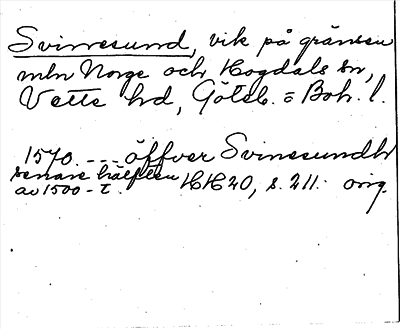 Svinesund, vik på gränsen
mln Norge och Hogdals sn,
Vette hd, Göteb. o Boh. l.
1570. --- öffver Svinesundh
senare hälften
av 1500-t. HH 20, s. 211. orig.